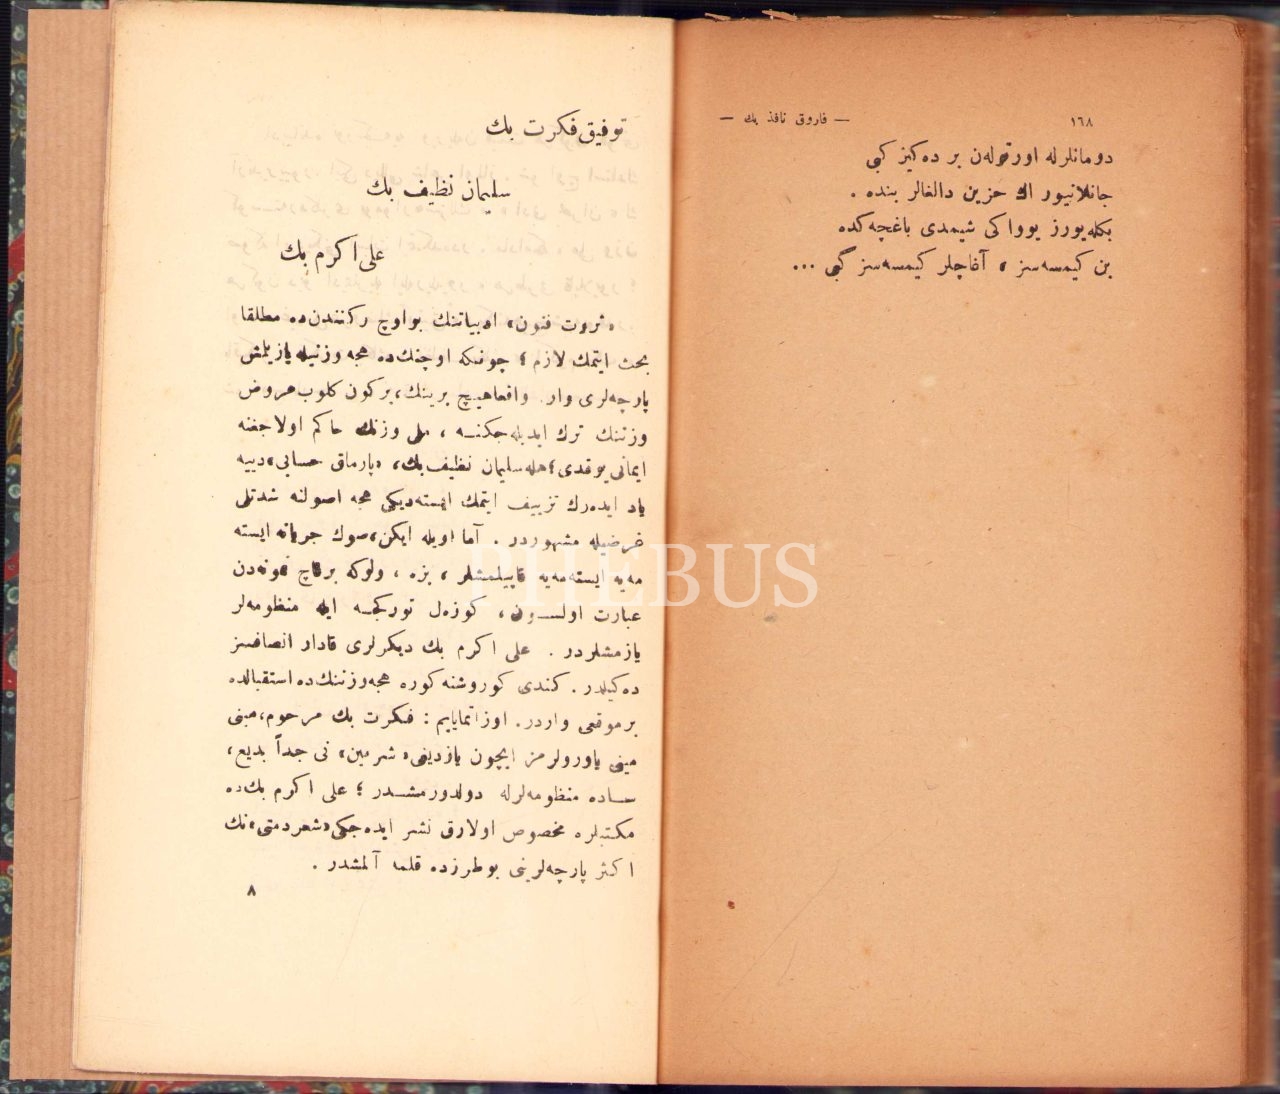 ١٦٨
— فاروق نافذ بك —
دومانلرله اورتوله‌ن بر ده‌كيز كبى
جانلانيور اك حزين دالغالر بنده .
بكله‌يورز يوواكى شيمدى باغچه‌كده
بن كيمسه‌سز ، آغاچلر كيمسه‌سز كبى ...
توفيق فكرت بك
سليمان نظيف بك
على اكرم بك
«ثروت فنون» ادبياتنك بو اوچ ركنندن‌ده مطلقا
بحث ايتمك لازم ؛ چونكه اوچنك‌ده هجه وزنيله يازيلمش
پارچه‌لرى وار . واقعا هيچ برينك، بر كون كلوب عروض
وزننك ترك ايديله‌جكنه ، ملى وزنك حاكم اولاجغنه
ايمانى يوقدى؛ هله سليمان نظيف بك، «پارماق حسابى» دييه
ياد ايده‌رك تزييف ايتمك ايسته‌ديكى هجه اصولنه شدتلى
غرضيله مشهوردر . آما اويله ايكن، صوك جريانه ايسته
مه‌يه ايسته‌مه‌يه قاپيلمشلر ، بزه ، ولوكه بر قاچ نمونه‌دن
عبارت اولسون ، كوزه‌ل توركجه ايله منظومه‌لر
يازمشلردر . على اكرم بك ديكرلرى قادار انصافسز
ده‌كيلدر . كندى كوروشنه كوره هجه وزننك‌ده استقبالده
بر موقعى واردر. اوزاتمايايم : فكرت بك مرحوم، مينى
مينى ياورولرمز ايچون يازديغى «شرمين» نى جداً بديع،
ساده منظومه‌لرله دولدورمشدر ؛ على اكرم بك‌ده
مكتبلره مخصوص اولارق نشر ايده‌جكى «شعر دمتى» نك
اكثر پارچه‌لرينى بو طرزده قلمه آلمشدر .
٨
PHEBUS